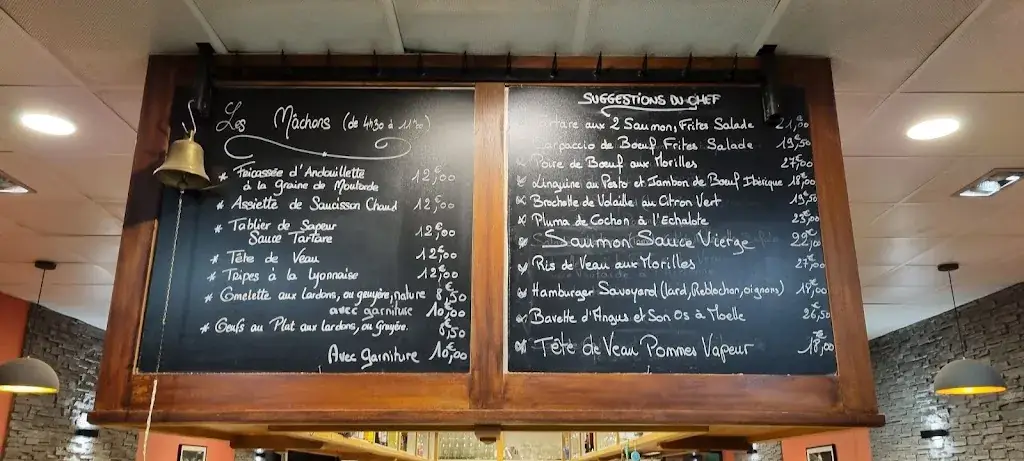 Les Mâchons (de 4h30 à 11h30)
* Fricassée d'Andouillette 12,00
à la Graine de Moutarde
* Assiette de Saucisson Chaud 12,00
* Tablier de Sapeur 12,00
Sauce Tartare
* Tête de Veau 12,00
* Tripes à la Lyonnaise 12,00
* Omelette aux lardons, ou gruyère, nature 8,50
avec garniture 10,00
* Oeufs au Plat aux lardons, ou Gruyère. 8,50
Avec garniture 10,00
SUGGESTIONS DU CHEF
aux 2 Saumons Frites Salade
Carpaccio de Boeuf Frites Salade 19,50
Poire de Boeuf aux Morilles 27,00
Linguine au Pesto et Jambon de Boeuf Ibérique 18,00
Brochette de Volaille au Citron Vert 19,50
Pluma de Cochon à l'Echalote
Saumon Sauce Vierge 22,00
Ris de Veau aux Morilles 27,00
Hamburger Savoyard (lard, Reblochon, oignons)
Bavette d'Angus et Son Os à Moelle 26,50
Tête de Veau Pommes Vapeur 18,00